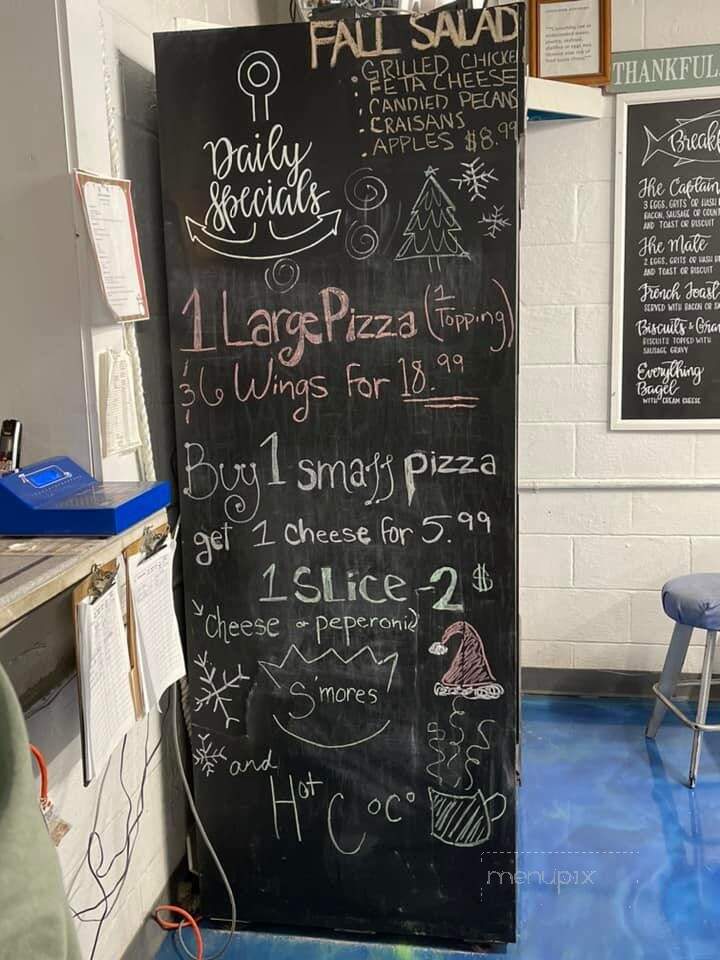 FALL SALAD
• GRILLED CHICKE
• FETA CHEESE
• CANDIED PECANS
• CRAISANS
• APPLES $8.99
Daily
Specials
1 Large Pizza (1 Topping)
36 Wings For 18.99
Buy 1 small pizza
get 1 cheese for 5.99
1 SLICE - 2 $
cheese or peperoni
S'mores
and
Hot CoCo
THANKFUL
Breakf
The Captain
3 EGGS, GRITS OR HASH B
BACON, SAUSAGE OR COUN
AND TOAST OR BISCUIT
The Mate
2 EGGS, GRITS OR HASH B
AND TOAST OR BISCUIT
French Toast
SERVED WITH BACON OR SA
Biscuits & Grav
BISCUITS TOPPED WITH
SAUSAGE GRAVY
Everything
Bagel
WITH CREAM CHEESE
menupix